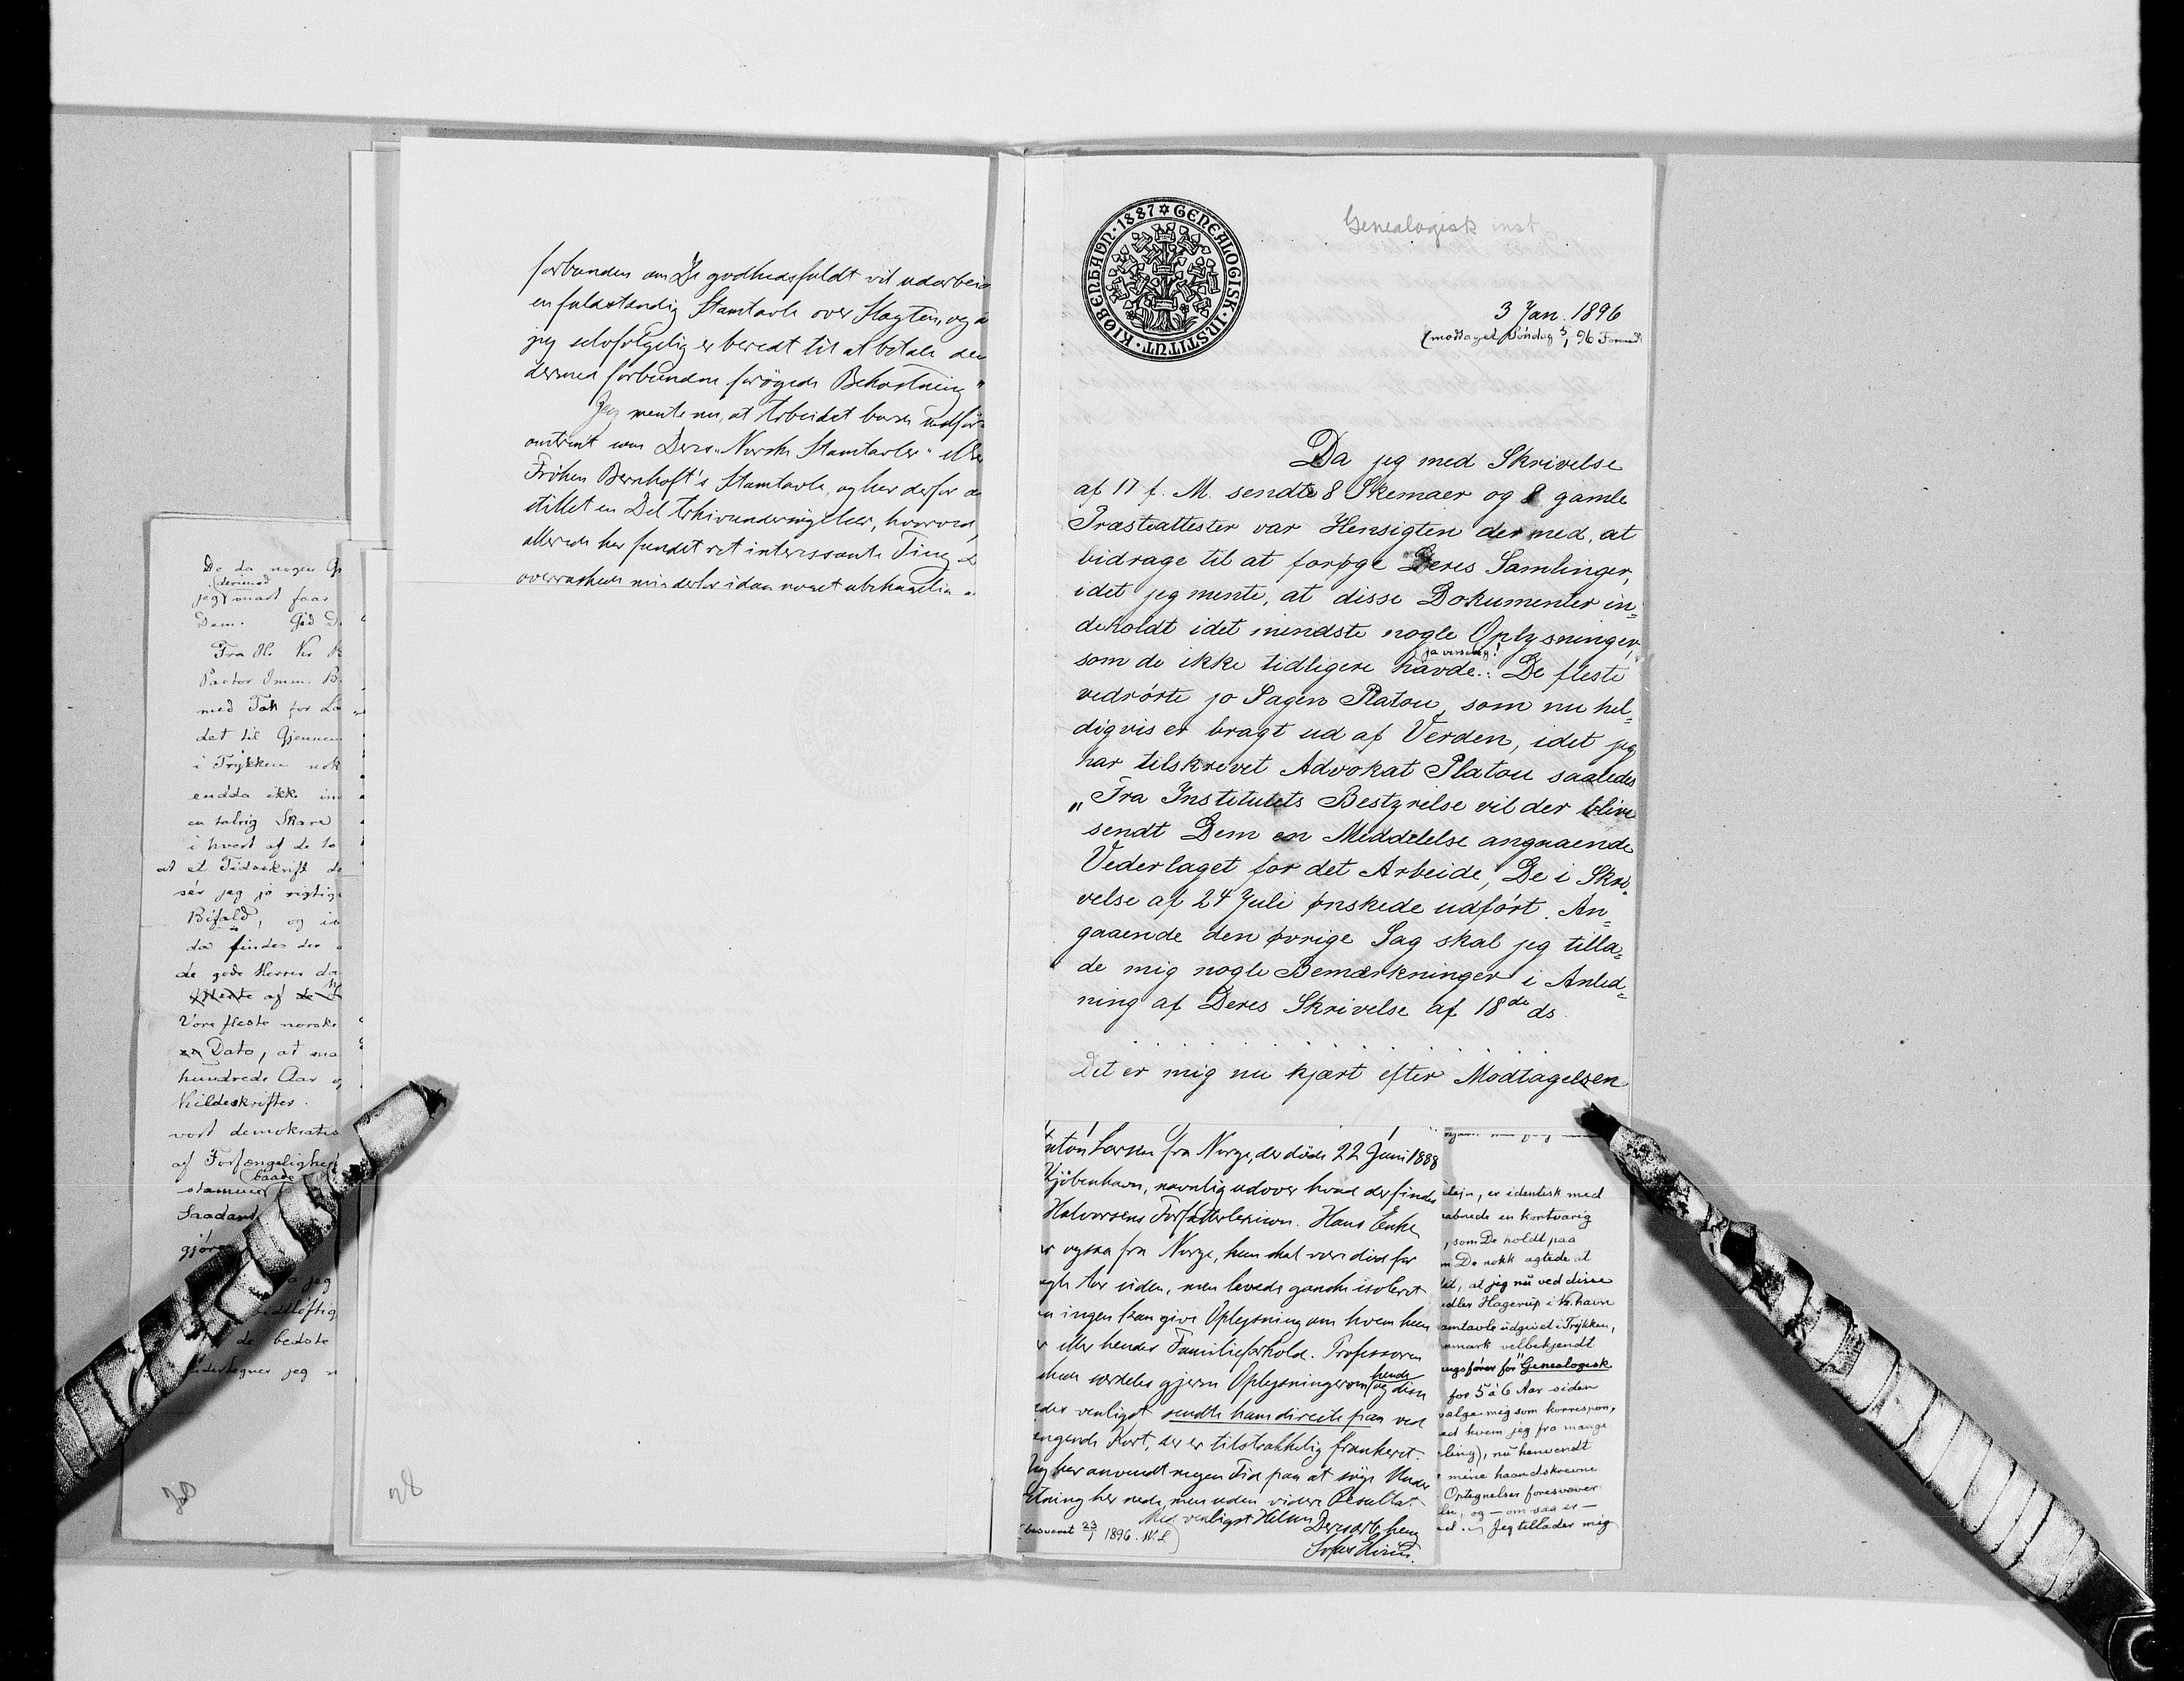 De da nogen
derimod
jeg snart faar
Dem. Gid
Fra H.
Pastor Imm. B
med Tak for
det til Gjennem
i Trykken nok
endda ikke in
en talrig Skare
i hvert af de to
at et Tidsskrift de
sér jeg jo rigtig
Bifald, og
da findes der
de gode Herrer da
af de
Vore fleste norske
Dato, at ma
hundrede Aar
Kildeskrifter.
vort demokratis
af Forfængelighed
baade
stammer
Saadant
gjøre
jeg
vidtløftig
de bedste
undertegner jeg
forbunden om De godhedsfuldt vil udarbeid
en fuldstændig Stamtavle over Slægten, og a
jeg selvfølgelig er beredt til at betale den
dermed forbundne forøgede Bekostning"
Jeg mente nu, at Arbeidet burde udfør
omtrent som Deres "Norske Stamtavler" eller
Frøken Bernhoft's Stamtavle, og har derfor
stillet en Del Arkivundersøgelser, hvorved
allerede har fundet ret interessante Ting
overraskede mig derfor idag noget ubehagelig
28
KIØBENHAVN · 1887 ✡ GENEALOGISK · INSTITUT ·
Genealogisk inst
3 Jan. 1896
(modtaget Søndag 5/1 96 Formid
Da jeg med Skrivelse
af 17 f. M. sendte 8 Skemaer og 8 gamle
Præsteattester var Hensigten dermed, at
bidrage til at forøge Deres Samlinger,
idet jeg mente, at disse Dokumenter in=
deholdt idet mindste nogle Oplysninger,
ja visselig!
som de ikke tidligere havde.: De fleste
vedrørte jo Sagen Platou, som nu hel=
digvis er bragt ud af Verden, idet jeg
har tilskrevet Advokat Platou saaledes
„Fra Institutets Bestyrelse vil der blive
sendt Dem en Meddelelse angaaende
Vederlaget for det Arbeide, De i Skri=
velse af 24 Juli ønskede udført. An=
gaaende den øvrige Sag skal jeg tilla=
de mig nogle Bemærkninger i Anled=
ning af Deres Skrivelse af 18de ds.
. . . . . . . . . . . .
Det er mig nu kjært efter Modtagelsen
Anton Larsen fra Norge, der døde 22 Juni 1888
Kjøbenhavn, navnlig udover hvad der findes
Halvorsens Forfatterlexicon. Hans Enke
ogsaa fra Norge, hun skal være død for
nogle Aar siden, men levede ganske isoleret
ingen kan give Oplysning om hvem hun
eller hendes Familieforhold. Professoren
særdeles gjerne Oplysninger om hende og disse
venligst sendte ham direkte paa ved
Kort, der er tilstrækkelig frankeret.
Jeg har anvendt megen Tid paa at søge Under
retning her nede, men uden videre Resultat.
Med venligst Hilsen Deres ærb. heng
besvaret 23/1 1896. W.L)
Sofus Elvius.
lejn, er identisk med
aabnede en kortvarig
, som De holdt paa
m De nokk agtede at
at jeg nu ved disse
Hagerup i Kr.havn
amtavle udgivet i Trykken,
nmark velbekjendt
ngsfører for "Genealogisk
for 5 à 6 Aar siden
valge mig som korrespon=
ed hvem jeg fra mange
ling), nu henvendt
mine haandskrevne
Optegnelser foresvæver
og — om saa er —
Jeg tillader mig